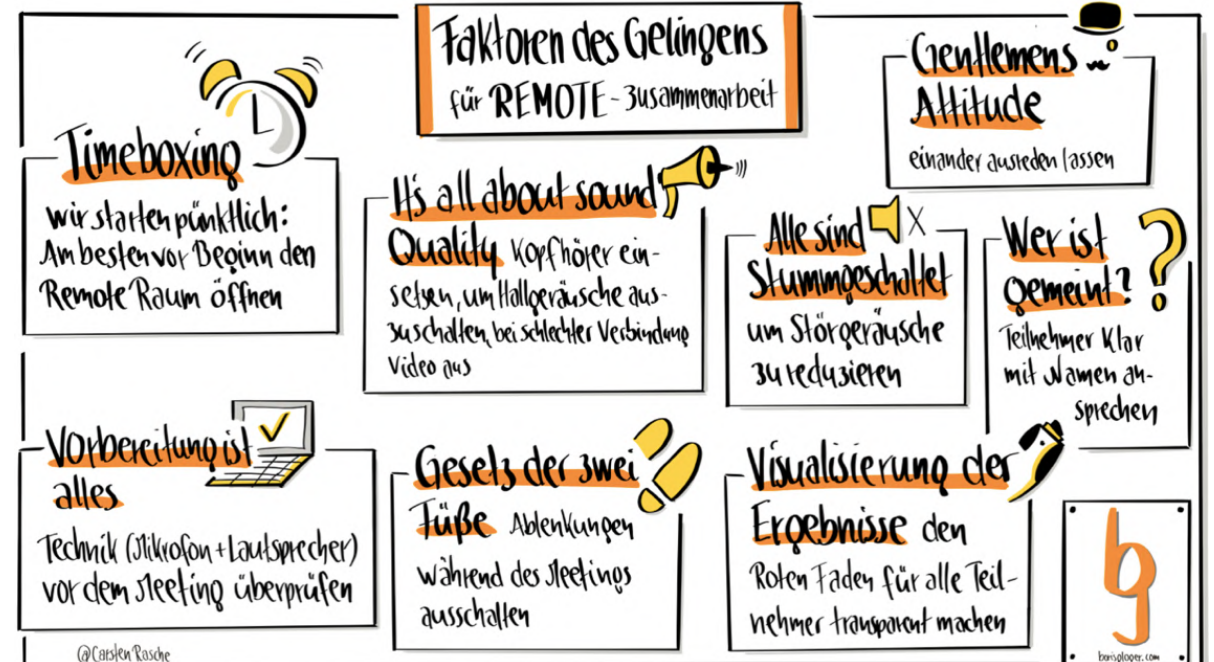 Faktoren des Gelingens
für REMOTE-Zusammenarbeit
Gentlemens
Attitude
einander ausreden lassen
Timeboxing
wir starten pünktlich:
Am besten vor Beginn den
Remote Raum öffnen
It's all about sound
Quality Kopfhörer ein-
setzen, um Hallgeräusche aus-
zuschalten, bei schlechter Verbindung
Video aus
Alle sind
Stummgeschaltet
um Störgeräusche
zu reduzieren
Wer ist
gemeint?
Teilnehmer Klar
mit Namen an-
sprechen
Vorbereitung ist
alles
Technik (Mikrofon + Lautsprecher)
vor dem Meeting überprüfen
Gesetz der zwei
Füße Ablenkungen
während des Meetings
ausschalten
Visualisierung der
Ergebnisse den
Roten Faden für alle Teil-
nehmer transparent machen
bg
borisgloger.com
@Carsten Rasche